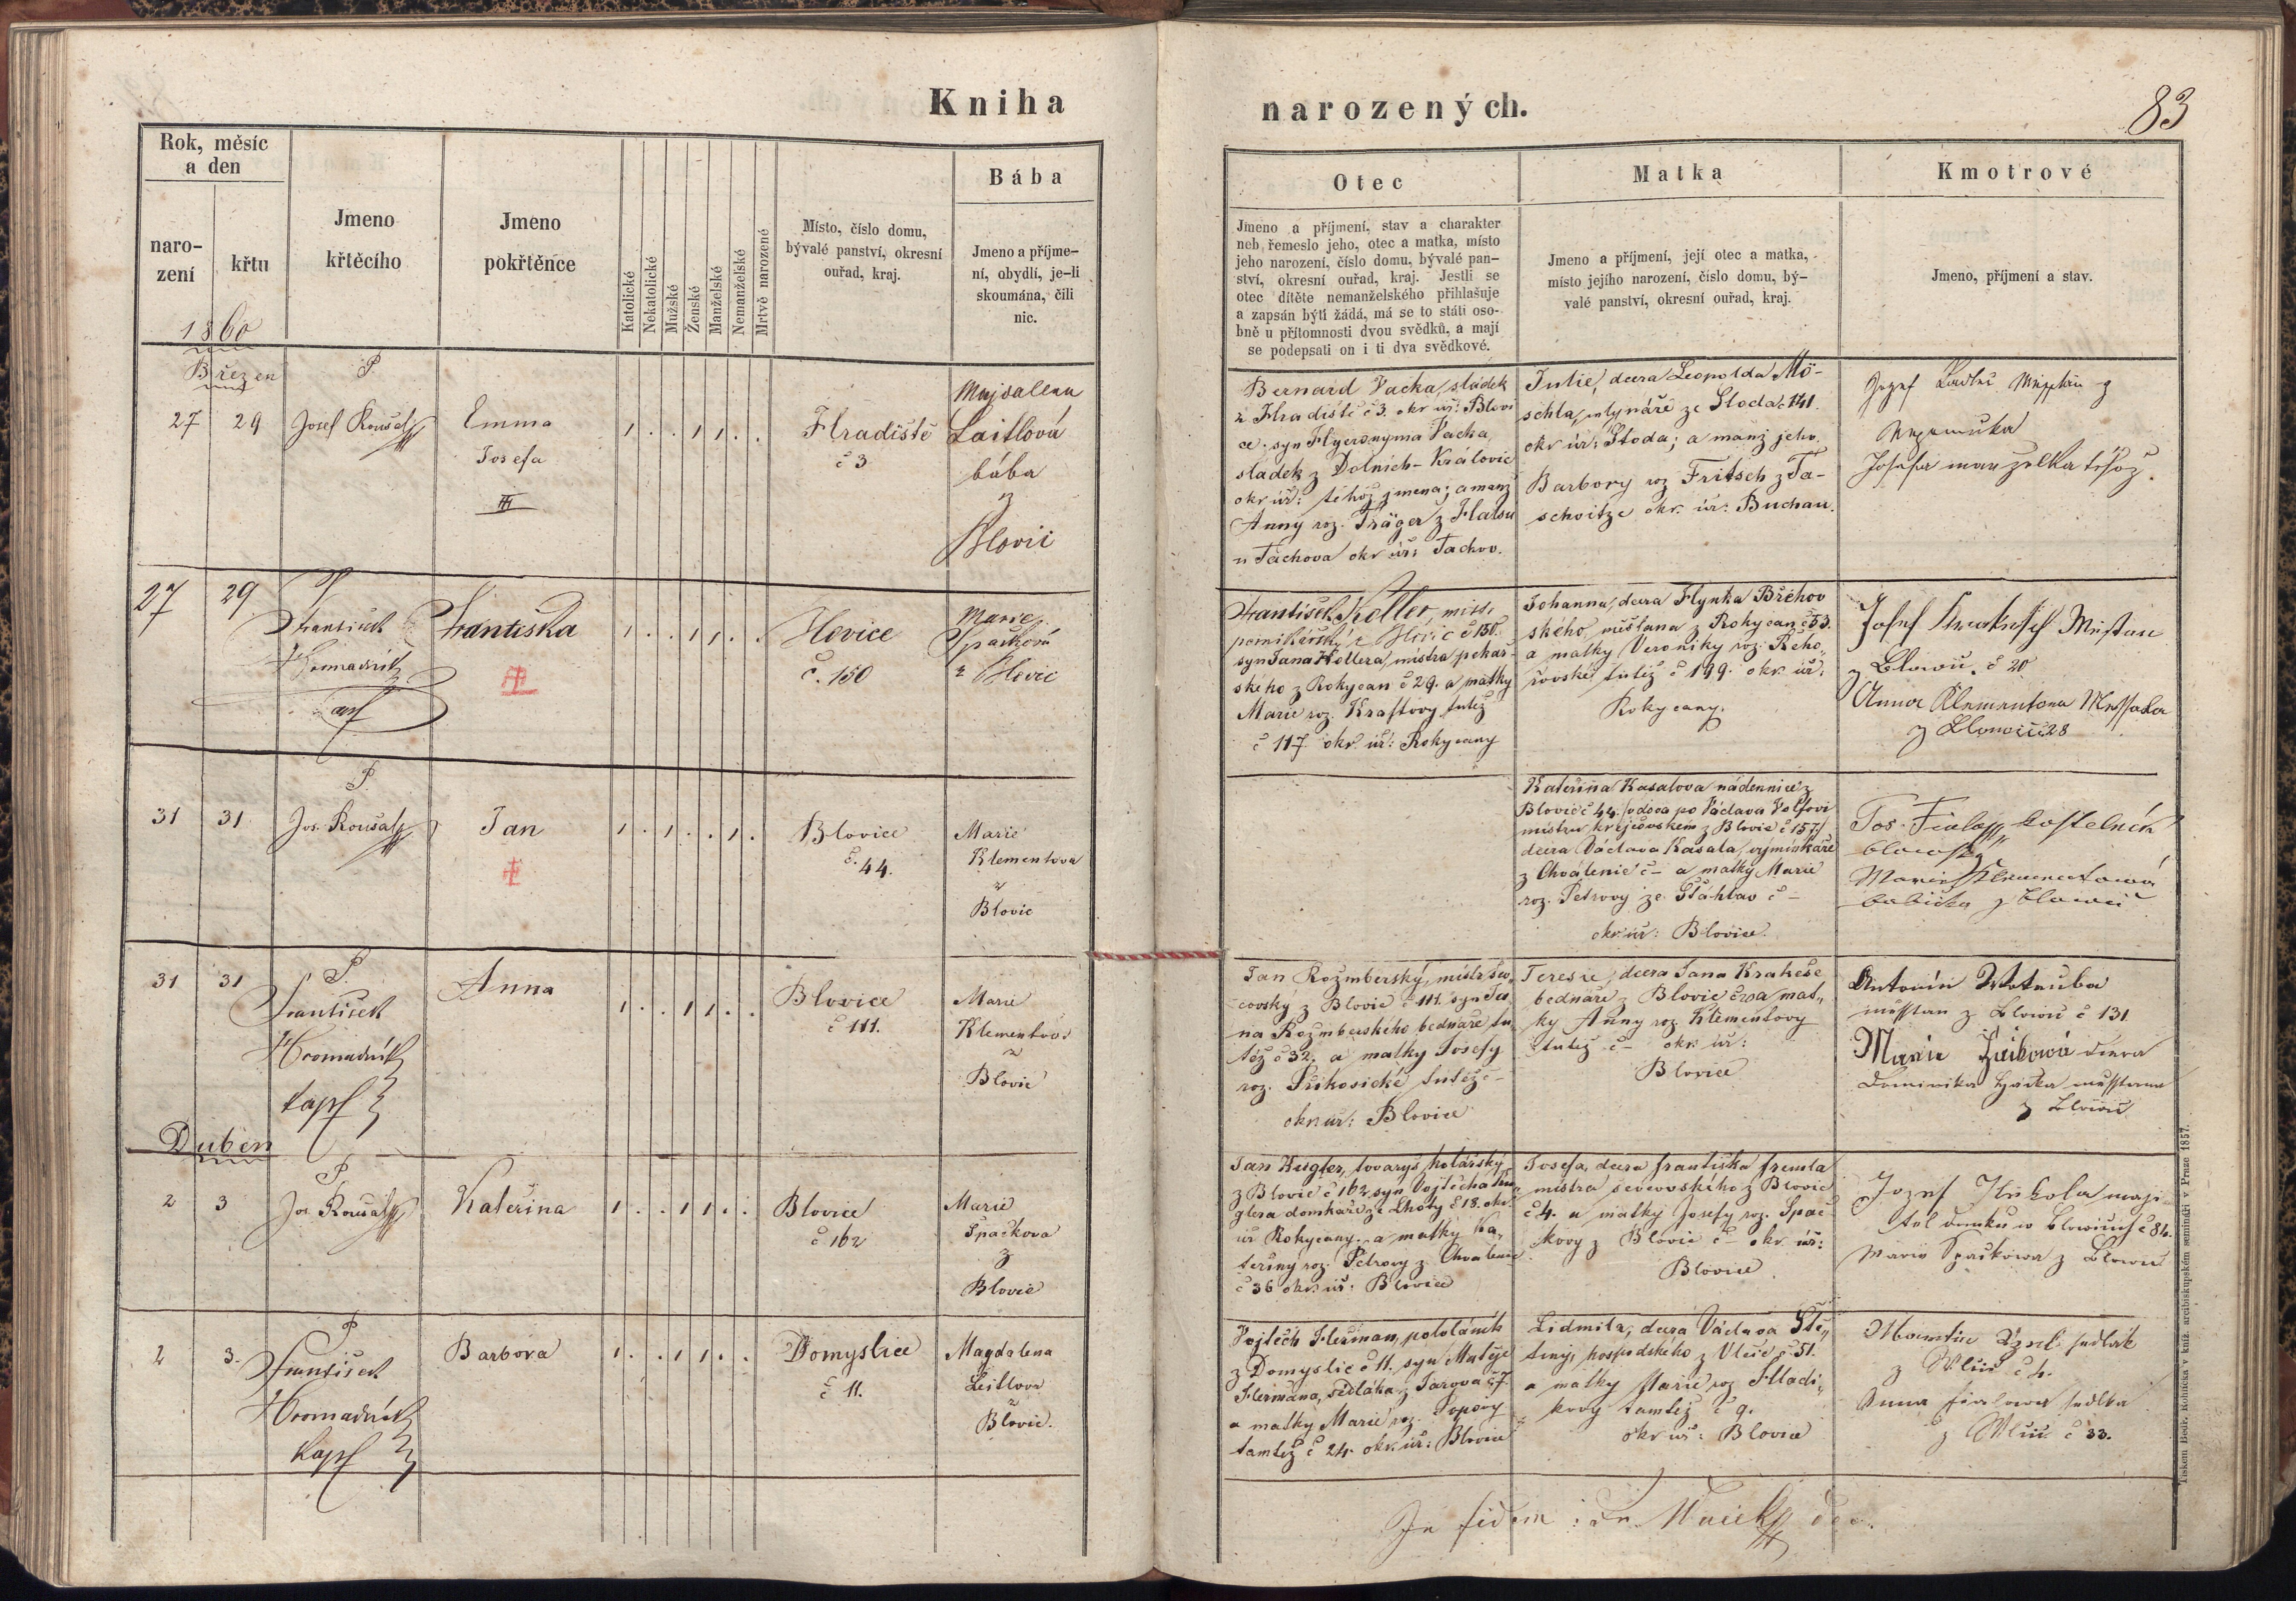 Kniha
narozených.
83
Rok, měsíc
a den
naro-
zení
křtu
Jmeno
křtěcího
Jmeno
pokřtěnce
Katolické
Nekatolické
Mužské
Ženské
Manželské
Nemanželské
Mrtvě narozené
Místo, číslo domu,
bývalé panství, okresní
ouřad, kraj.
Bába
Jmeno a příjme-
ní, obydlí, je-li
skoumána, čili
nic.
Otec
Jmeno a příjmení, stav a charakter
neb řemeslo jeho, otec a matka, místo
jeho narození, číslo domu, bývalé pan-
ství, okresní ouřad, kraj. Jestli se
otec dítěte nemanželského přihlašuje
a zapsán býti žádá, má se to státi oso-
bně u přítomnosti dvou svědků, a mají
se podepsati on i ti dva svědkové.
Matka
Jmeno a příjmení, její otec a matka,
místo jejího narození, číslo domu, bý-
valé panství, okresní ouřad, kraj.
Kmotrové
Jmeno, příjmení a stav.
1860
Březen
27 29
P.
Josef Roušal
Emma
Josefa
III
1 . . 1 1 . .
Hradiště
č 3
Majdalena
Laitlová
bába
z
Blovic
Bernard Vacka, sládek
z Hradiště č 3. okr úř: Blovi
ce. syn Hyeronyma Vacka,
sládek z Dolních-Královic
okr úř: téhož jmena; a manž
Anny roz. Träger z Halsu
u Tachova okr úř: Tachov.
Julie, dcera Leopolda Mö-
schla, mlynáře ze Stoda č 141.
okr úř: Stoda; a manž jeho
Barbory roz Fritsch z Ta-
schvitze okr. úř: Buchau.
Nepomuka
Josefa manželka téhož.
27 29
P
František
Hromadník
kapl
Františka
1 . . 1 1 . .
Blovice
č. 150
Marie
Špačková
z Blovic
František Keller, mistr
pernikářský z Blovic č 150.
syn Jana Kellera, mistra pekař-
ského z Rokycan č 29. a matky
Marie roz. Kraftovy tutéž
č 117 okr. úř: Rokycany
Johanna, dcera Hynka Břehov
ského, měšťana z Rokycan č 53.
a matky Veroniky roz. Řeho-
řovské tutéž č 199. okr. úř:
Rokycany.
z Blowic č 20
Anna Klementowa
z Blowic č 28
31 31
P.
Jos. Roušal
Jan
1 . 1 . . 1 .
Blovice
č. 44.
Marie
Klementova
z
Blovic
Kateřina Kasalova nádennice z
Blovic č 44. /vdova po Václava Volfovi
mistru krejčovském z Blovic č 157./
dcera Václava Kasala, výminkáře
z Chválenic č – a matky Marie
roz. Petrovy ze Štáhlav č –
okr úř: Blovice.
Jos. Fiala kostelník
blowický
Marie Klementowá
babička z Blowic
31 31
P.
František
Hromadník
kapl
Anna
1 . . 1 1 . .
Blovice
č 111.
Marie
Klementova
z
Blovic
Jan Rožmberský, mistr šev-
covský z Blovic č 111. syn Ja-
na Rožmberského bednáře tu-
též č 32. a matky Josefy
roz. Příkosické tutéž č –
okr. úř: Blovice
Terezie, dcera Jana Krakeše
bednáře z Blovic č 20 a mat-
ky Anny roz Klementovy
tutéž č – okr úř:
Blovice
Antonín Wotruba
měsstan z Blowic č 131
Marie Žáčkowá dcera
Dominika Žáčka měsstana
z Blowic
Duben
2 3
P.
Jos. Roušal
Kateřina
1 . . 1 1 . .
Blovice
č 162
Marie
Špačkova
z
Blovic
Jan Kugler, tovaryš kolářský
z Blovic č 162, syn Vojtěcha Ku-
glera domkáře ze Lhoty č 18. okr.
úř Rokycany. a matky Ka-
teřiny roz. Petrovy z Chválenic
č 36 okr. úř: Blovice
Josefa, dcera Františka Fremla
mistra ševcovského z Blovic
č 4. a matky Josefy roz. Špač
kovy z Blovic č – okr úř:
Blovice
Jozef Kukola maji-
tel domku w Blowicích č 86.
Marie Spačkowa z Blowic
2 3.
P
František
Hromadník
kapl
Barbora
1 . . 1 1 . .
Domyslice
č 11.
Magdalena
Leitlova
z
Blovic.
Vojtěch Heřman, pololáník
z Domyslic č 11. syn Matěje
Heřmana, sedláka z Žarova č 7.
a matky Marie roz. Popovy
tamtéž č 24. okr. úř: Blovice
Lidmila, dcera Václava Ště-
tiny, hospodského z Vlčic č 51.
a matky Marie roz Hladí-
kovy tamtéž č 9.
okr úř: Blovice
Martin sedlák
z Wlčic č 4.
Anna Fialowa sedlka
z Wlčic č 33.
In fidem:
Tiskem Bedř. Rohlíčka v kníž. arcibiskupském semináři v Praze 1857.